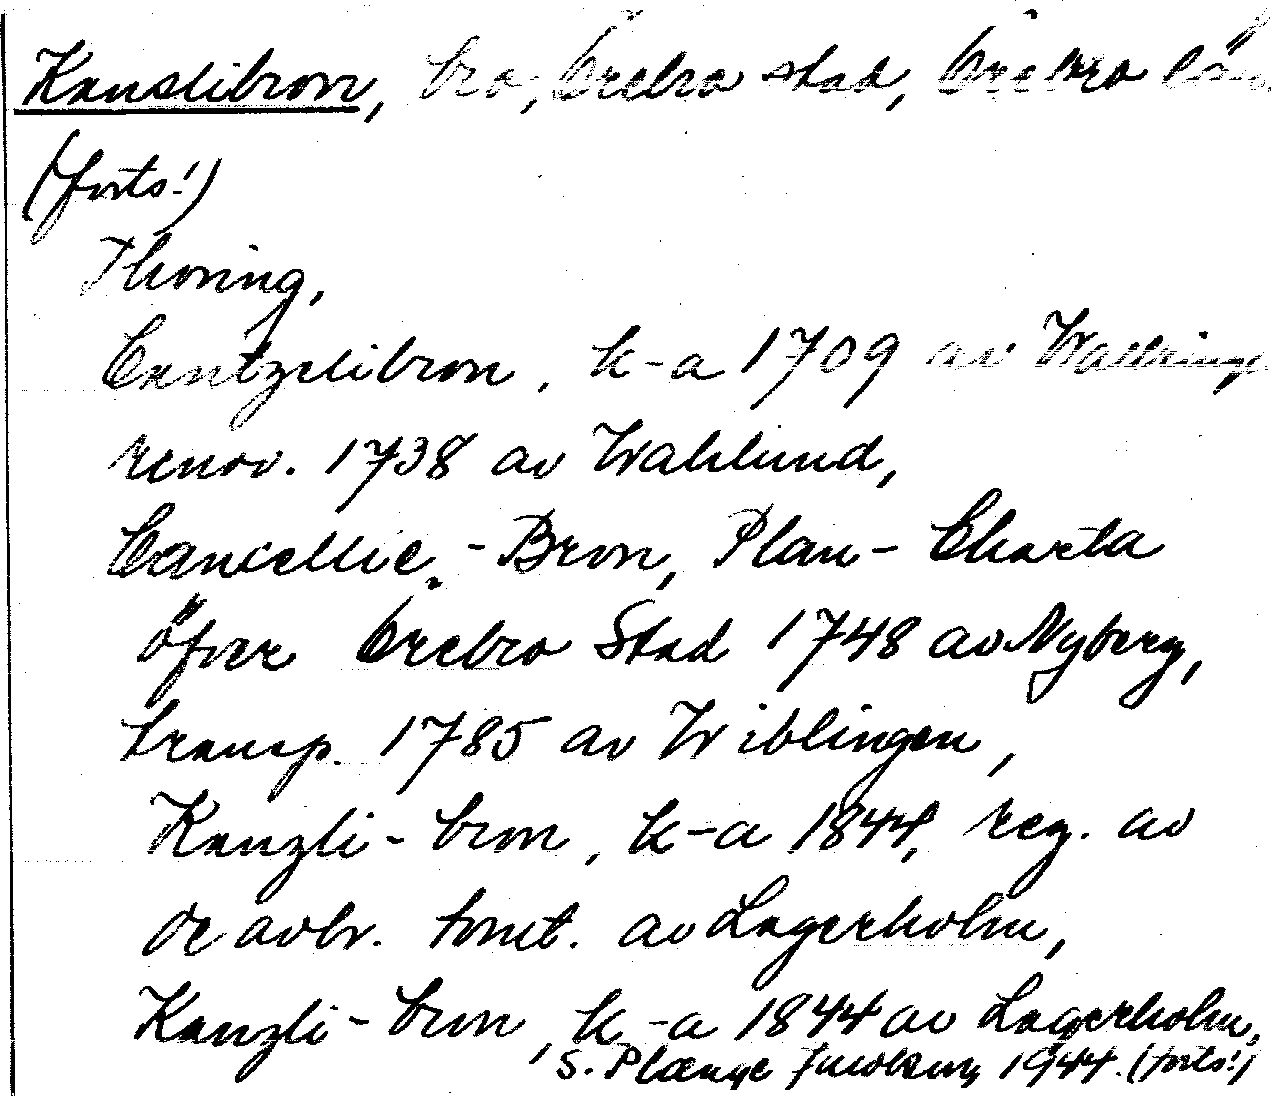 Kanslibron, bro, Örebro stad, Örebro län
(forts!)
Thoring,
Cantzelibron, k-a 1709 av Wallring
renov. 1738 av Wahlund,
Cancellie-Bron, Plan-Charta
öfver Örebro Stad 1748 av Nyberg,
transp. 1785 av Wiblingen,
Kanzli-bron, k-a 1844, reg. av
de avbr. tomt. av Lagerholm,
Kanzli-bron, k-a 1844 av Lagerholm,
S. Plænge Jacobson 1944. (forts!)